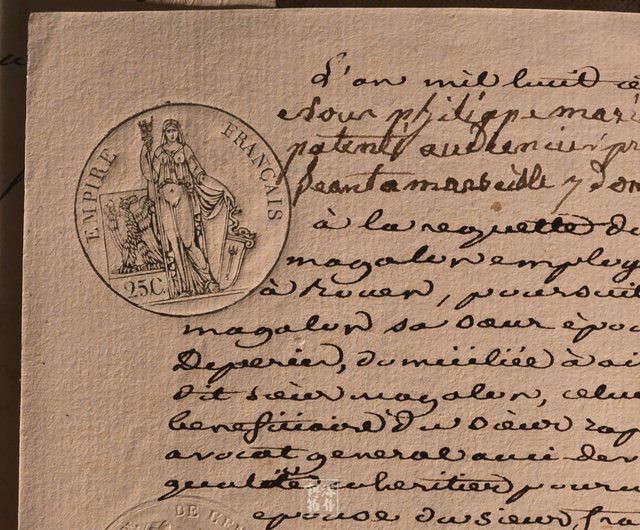 EMPIRE FRANÇAIS
25C.
L'an mil huit c
Nous philippe mari
patenté audiencier pr
séant a marseille y dom
à la requette du
magalon employ
à Rouen, poursuit
magalon sa sœur épou
Deperier, domiciliée à ai
dit sieur magalon, celui
benefitiaire du sieur rap
avocat general aux der
qualité d'heritier pour u
epouse du sieur fra
DE